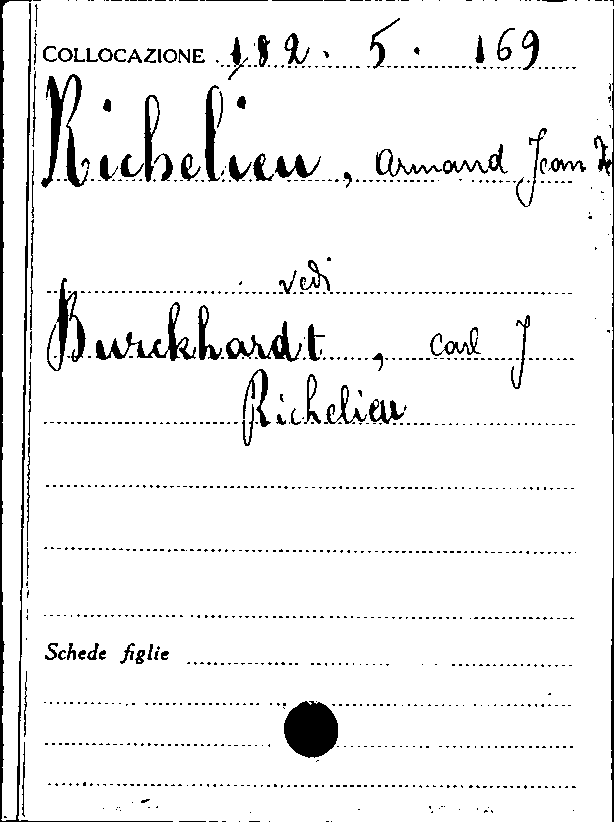 COLLOCAZIONE 182. 5. 169
Richelieu, Armand Jean
vedi
Burckhardt, Carl J
Richelieu
Schede figlie